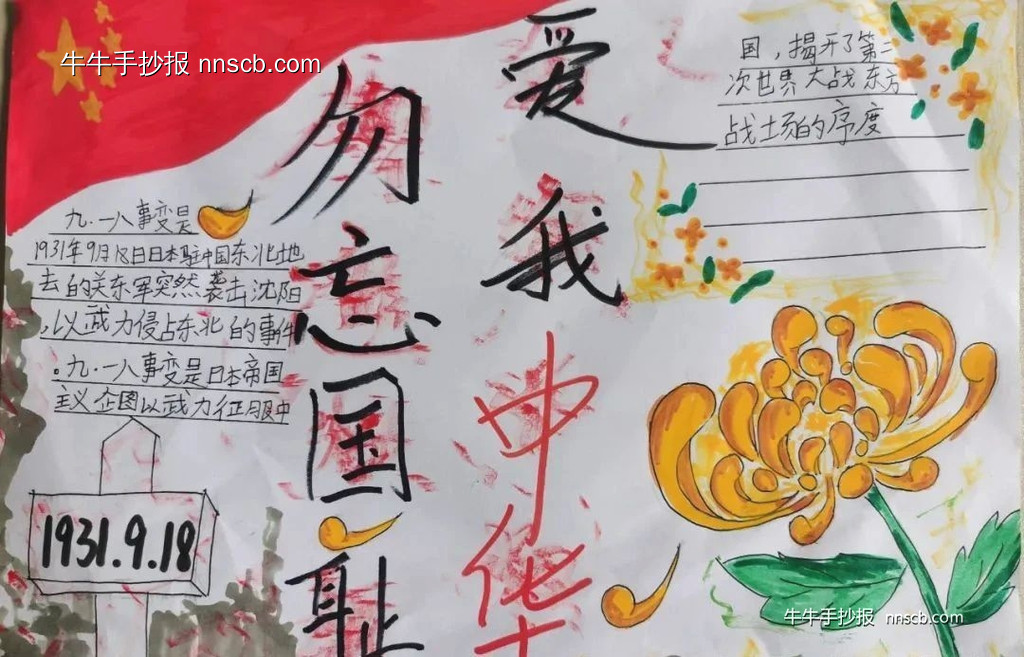 牛牛手抄报 nnscb.com
勿忘国耻
爱我中华
九·一八事变是
1931年9月18日日本驻中国东北地
去的关东军突然袭击沈阳
,以武力侵占东北的事件
。九·一八事变是日本帝国
主义企图以武力征服中
国，揭开了第二
次世界大战东方
战场的序度
1931.9.18
牛牛手抄报 nnscb.com